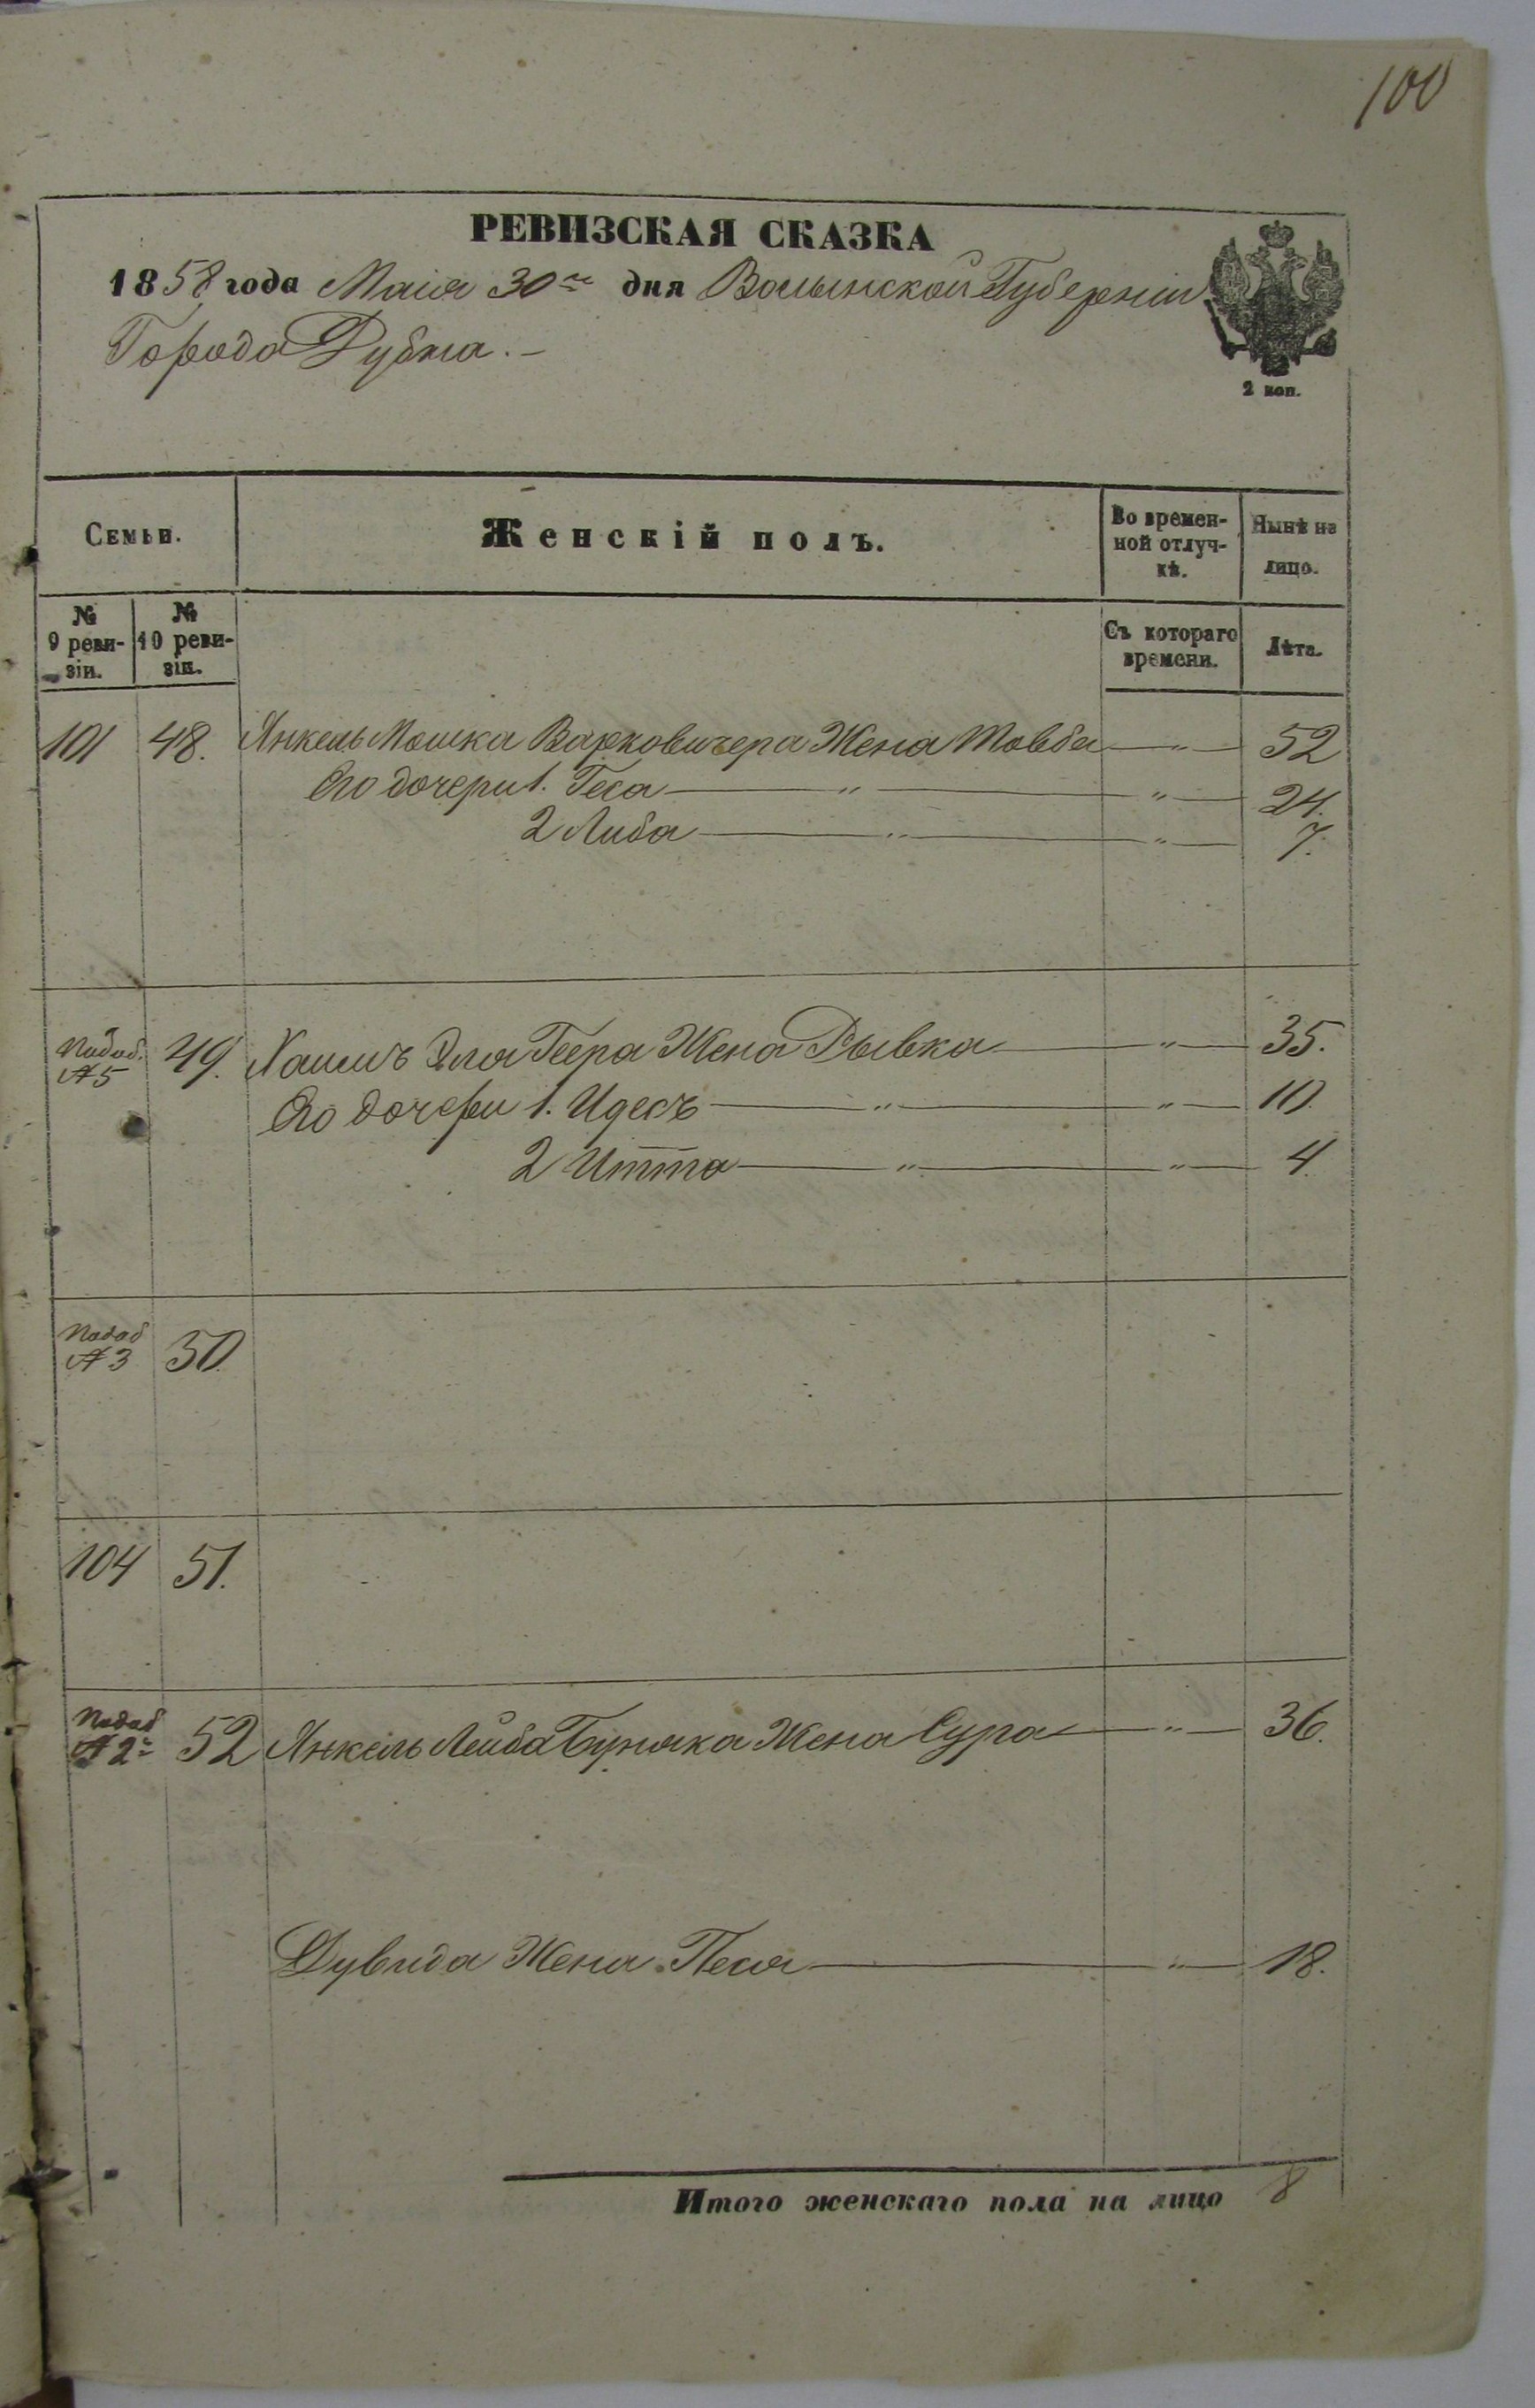 100
РЕВИЗСКАЯ СКАЗКА
1858 года Маія 30го дня Волынской Губерніи
Города Дубна.-
2 коп.
Семьи.
Женскій полъ.
Во времен-
ной отлуч-
кѣ.
Нынѣ на
лицо.
№
9 реви-
зіи.
№
10 реви-
зіи.
Съ котораго
времени.
Лѣта.
101 48. Янкель Мошка Варковичера Жена Товба — " — 52
Его дочери 1. Геса — " — " — 24.
2 Либа — " — " — 7.
№5 49. Хаимъ Эля Геера Жена Рывка — " — 35.
Его дочери 1. Идесъ — " — " — 10.
2 Итта — " — " — 4.
№3 50.
104 51.
№2 52 Янкель Лейба Буняка Жена Сура — " — 36.
Дувида Жена Песя — " — 18.
Итого женскаго пола на лицо 8